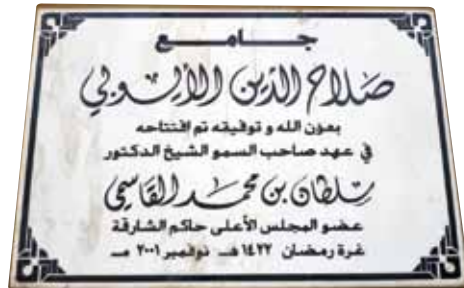 جامع
صلاح الدين الأيوبي
بعون الله و توفيقه تم افتتاحه
في عهد صاحب السمو الشيخ الدكتور
سلطان بن محمد القاسمي
عضو المجلس الأعلى حاكم الشارقة
غرة رمضان ١٤٢٢ هـ نوفمبر ٢٠٠١ مـ